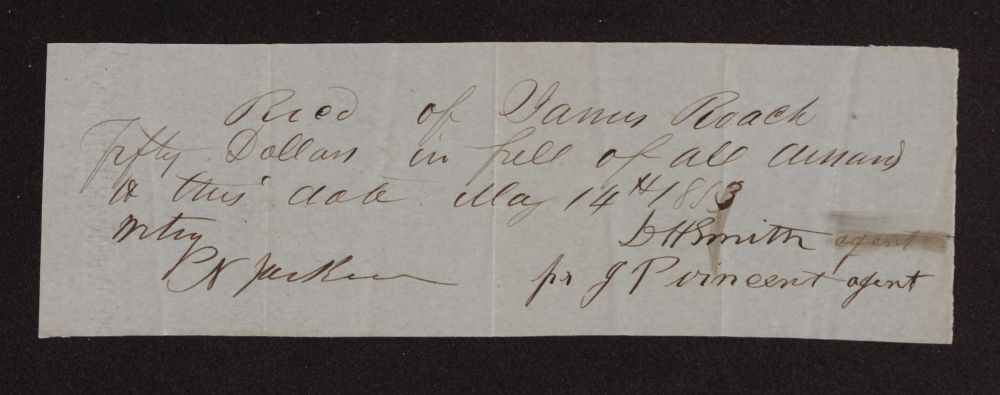 Recd of James Roach
fifty Dollars in full of all demands
to this date May 14th 1853
D H Smith agent
witness
pr J P vincent agent